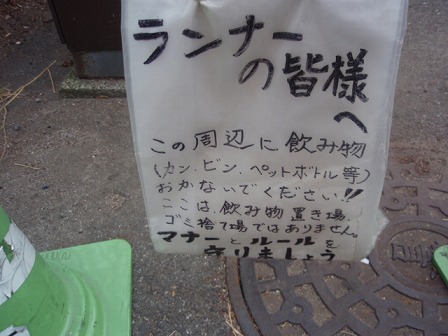 ランナー
の皆様
へ
この周辺に飲み物
(カン、ビン、ペットボトル等)
おかないでください!!
ここは、飲み物置き場、
ゴミ捨て場ではありません。
マナーとルールを
守りましょう